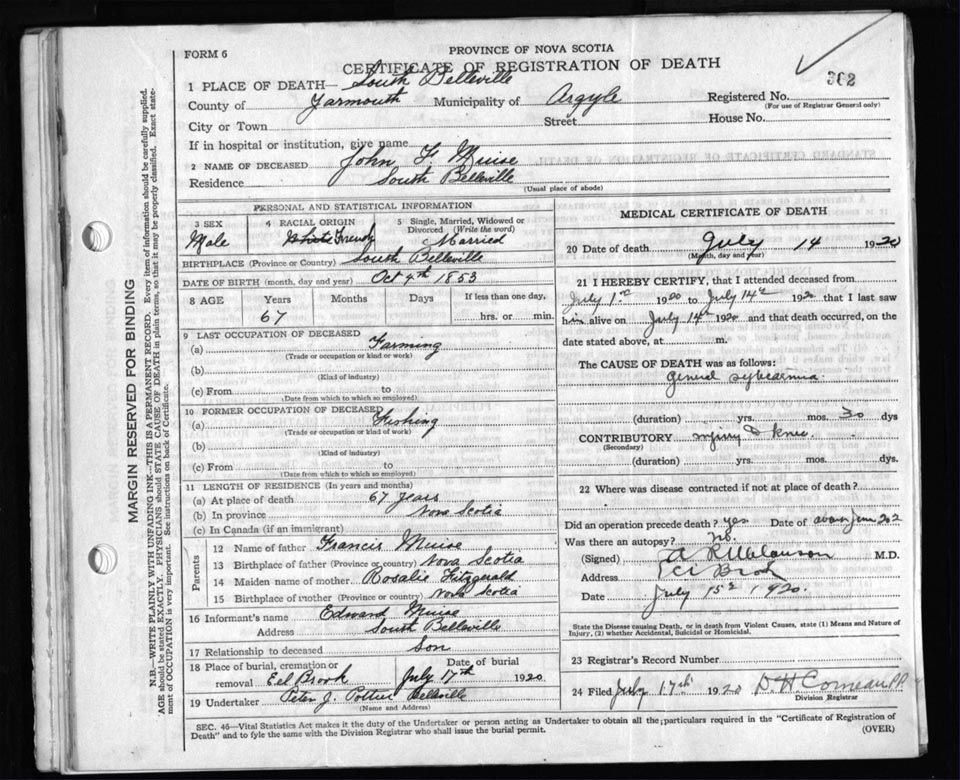 FORM 6
PROVINCE OF NOVA SCOTIA
CERTIFICATE OF REGISTRATION OF DEATH
362
1 PLACE OF DEATH— South Belleville
County of Yarmouth Municipality of Argyle Registered No.
(For use of Registrar General only)
City or Town Street House No.
If in hospital or institution, give name
2 NAME OF DECEASED John F. Muise
Residence South Belleville
(Usual place of abode)
PERSONAL AND STATISTICAL INFORMATION
3 SEX 4 RACIAL ORIGIN 5 Single, Married, Widowed or Divorced (Write the word)
Male White French Married
BIRTHPLACE (Province or Country) South Belleville
DATE OF BIRTH (month, day and year) Oct 4th 1853
8 AGE Years Months Days If less than one day,
67 hrs. or min.
9 LAST OCCUPATION OF DECEASED
(a) Farming
(Trade or occupation or kind or work)
(b)
(Kind of industry)
(c) From to
(Date from which to which so employed)
10 FORMER OCCUPATION OF DECEASED
(a) Fishing
(Trade or occupation or kind of work)
(b)
(Kind of industry)
(c) From to
(Date from which to which so employed)
11 LENGTH OF RESIDENCE (In years and months)
(a) At place of death 67 years
(b) In province Nova Scotia
(c) In Canada (if an immigrant)
Parents
12 Name of father Francis Muise
13 Birthplace of father (Province or country) Nova Scotia
14 Maiden name of mother Rosalie Fitzgerald
15 Birthplace of mother (Province or country) Nova Scotia
16 Informant's name Edward Muise
Address South Belleville
17 Relationship to deceased Son
18 Place of burial, cremation or Date of burial
removal Eel Brook July 17th 1920
19 Undertaker Peter J. Pottier Belleville
(Name and Address)
MEDICAL CERTIFICATE OF DEATH
20 Date of death July 14 1920
(Month, day and year)
21 I HEREBY CERTIFY, that I attended deceased from
July 1st 1920 to July 14th 1920 that I last saw
him alive on July 14th 1920 and that death occurred, on the
date stated above, at m.
The CAUSE OF DEATH was as follows:
General
(duration) yrs. mos. 30 dys
CONTRIBUTORY injury to knee
(Secondary)
(duration) yrs. mos. dys.
22 Where was disease contracted if not at place of death?
Did an operation precede death? yes Date of June
Was there an autopsy? No.
(Signed) M.D.
Address Brook
Date July 15th 1920.
State the Disease causing Death, or in death from Violent Causes, state (1) Means and Nature of
Injury, (2) whether Accidental, Suicidal or Homicidal.
23 Registrar's Record Number
24 Filed July 17th 1920 D. H. Comeau PP
Division Registrar
SEC. 46—Vital Statistics Act makes it the duty of the Undertaker or person acting as Undertaker to obtain all the particulars required in the "Certificate of Registration of
Death" and to fyle the same with the Division Registrar who shall issue the burial permit. (OVER)
MARGIN RESERVED FOR BINDING
N.B.—WRITE PLAINLY WITH UNFADING INK—THIS IS A PERMANENT RECORD. Every item of information should be carefully supplied.
AGE should be stated EXACTLY. PHYSICIANS should STATE CAUSE OF DEATH in plain terms, so that it may be properly classified. Exact statement of OCCUPATION is very important. See instructions on back of Certificate.